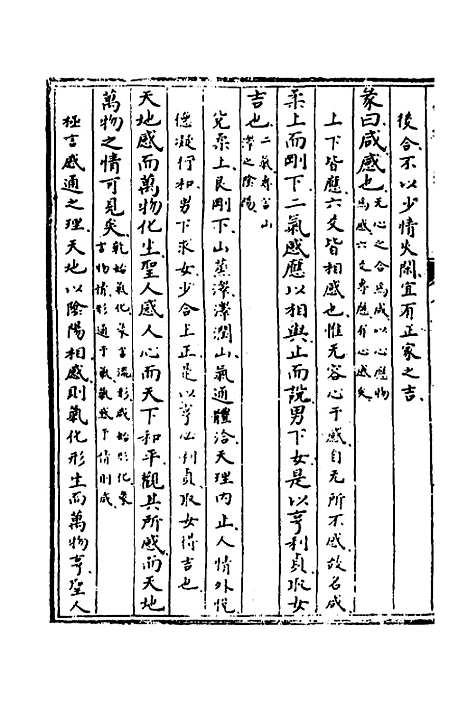 後合不以少情失閑宜有正家之吉
彖曰咸感也无心之合為咸以心應物
為感六爻專應有心感矣
上下皆應六爻皆相感也惟无容心于感自无所不感故名咸
柔上而剛下二氣感應以相與止而說男下女是以亨利貞取女
吉也二氣專言山
澤之陰陽
兌柔上艮剛下山蒸澤澤潤山氣通體洽天理內止人情外悅
德凝行和男下求女少合上正是以亨必利貞取女得吉也
天地感而萬物化生聖人感人心而天下和平觀其所感而天地
萬物之情可見矣乾始氣化象言流形咸始形化象
言物情形通于氣氣感于情則咸
極言感通之理天地以陰陽相感則氣化形生而萬物亨聖人